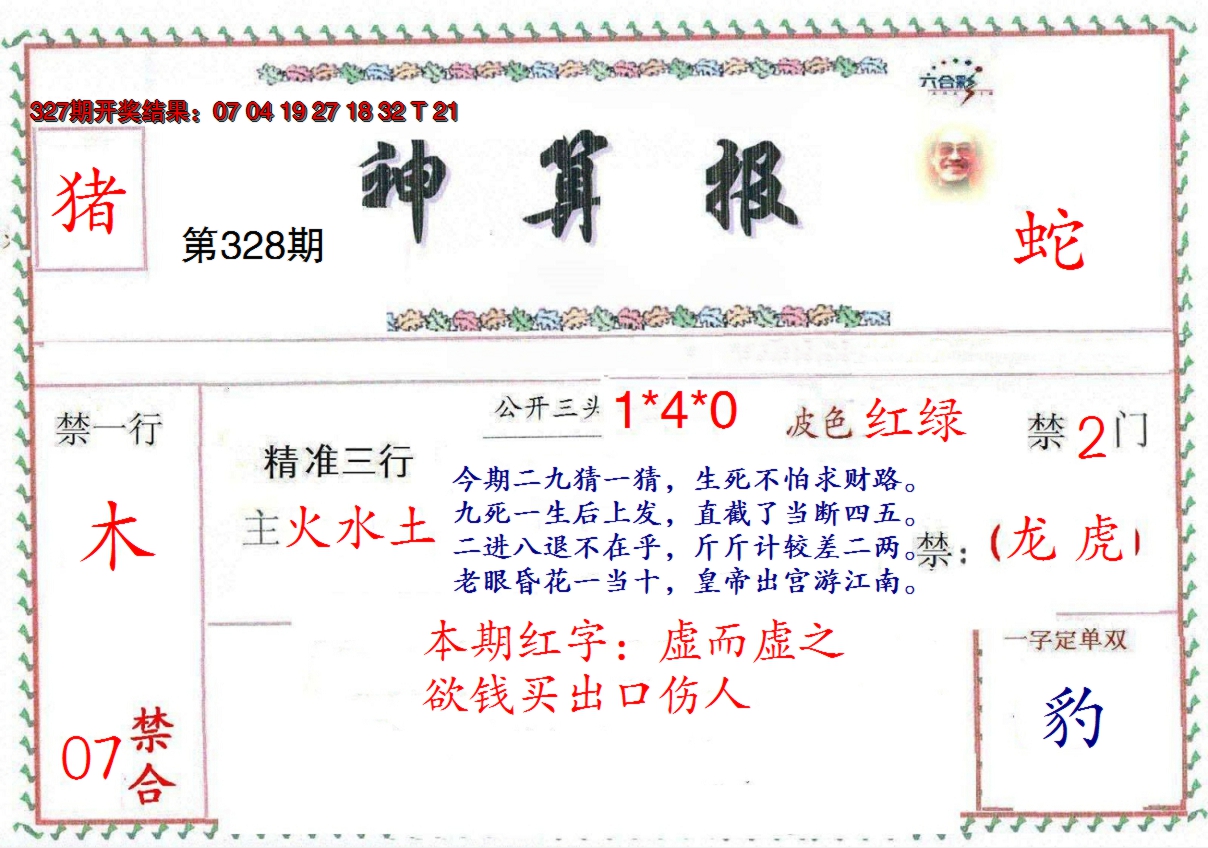 六合彩
327期开奖结果：07 04 19 27 18 32 T 21
神算报
猪
第328期
蛇
公开三头 1*4*0
波色 红绿
禁一行
禁2门
精准三行
主火水土
木
今期二九猜一猜，生死不怕求财路。
九死一生后上发，直截了当断四五。
二进八退不在乎，斤斤计较差二两。
老眼昏花一当十，皇帝出宫游江南。
禁：（龙 虎）
本期红字：虚而虚之
欲钱买出口伤人
一字定单双
豹
07禁合